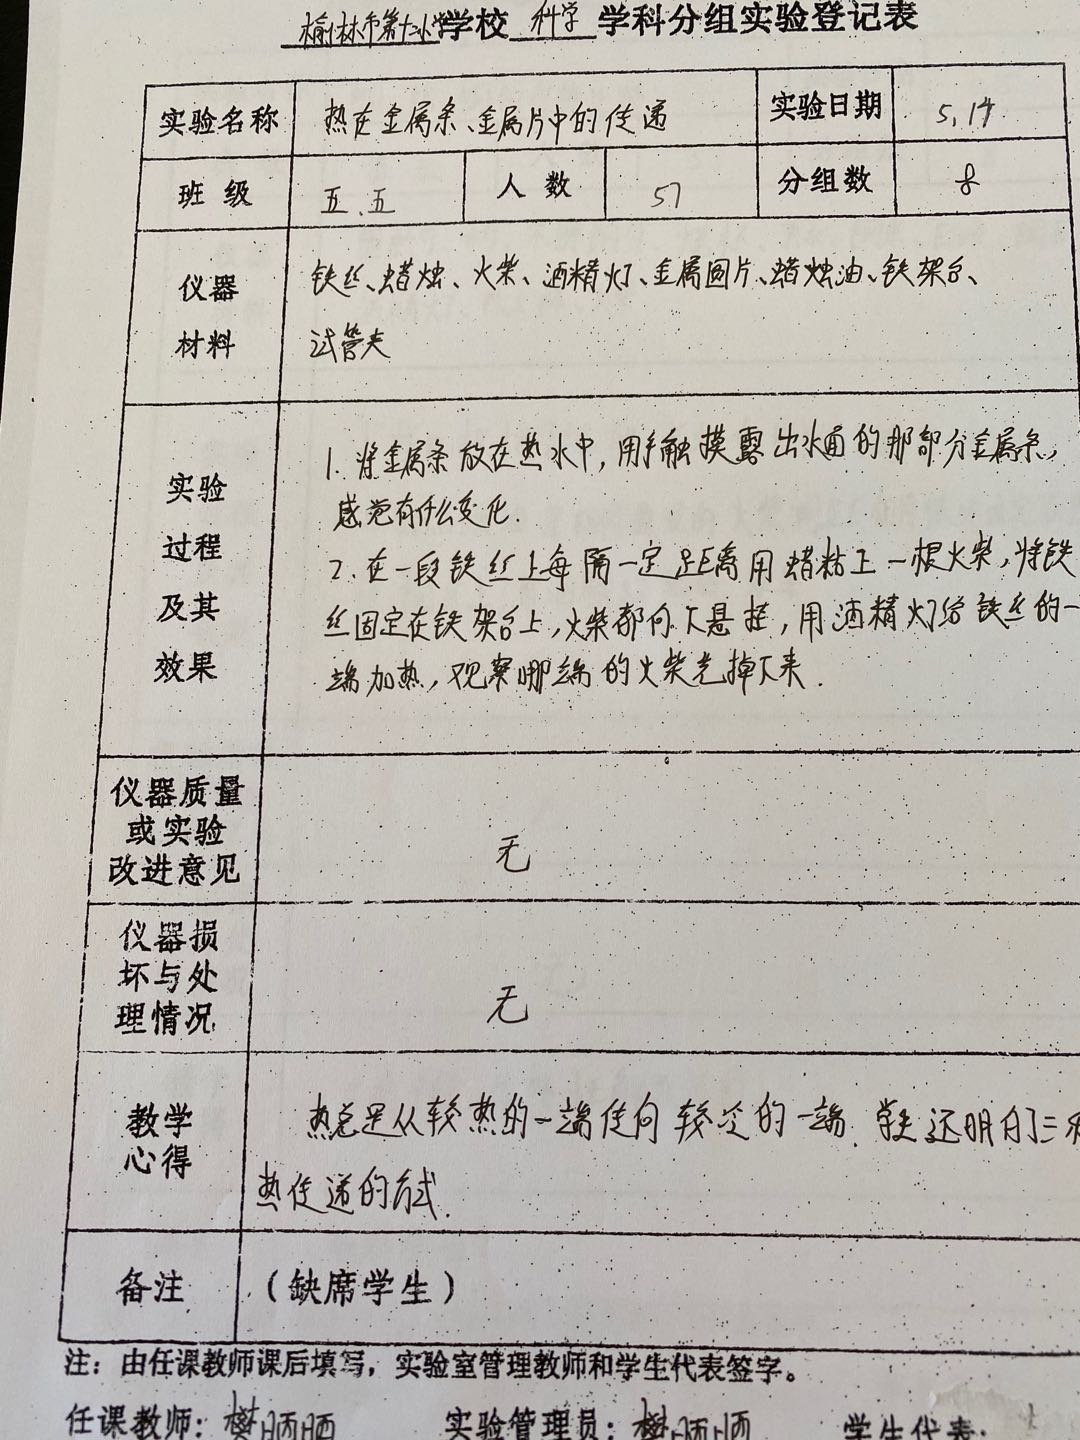 榆林市第十二小学学校 科学 学科分组实验登记表
实验名称 热在金属条、金属片中的传递 实验日期 5.14
班级 五.五 人数 57 分组数 8
仪器材料 铁丝、蜡烛、火柴、酒精灯、金属圆片、蜡烛油、铁架台、
试管夹
实验过程及其效果 1.将金属条放在热水中,用手触摸露出水面的那部分金属条,
感觉有什么变化.
2.在一段铁丝上每隔一定距离用蜡粘上一根火柴,将铁
丝固定在铁架台上,火柴都向下悬挂,用酒精灯给铁丝的一
端加热,观察哪端的火柴先掉下来.
仪器质量或实验改进意见 无
仪器损坏与处理情况 无
教学心得 热总是从较热的一端传向较冷的一端.学生还明白了三
热传递的方式.
备注 (缺席学生)
注:由任课教师课后填写,实验室管理教师和学生代表签字。
任课教师: 实验管理员: 学生代表: